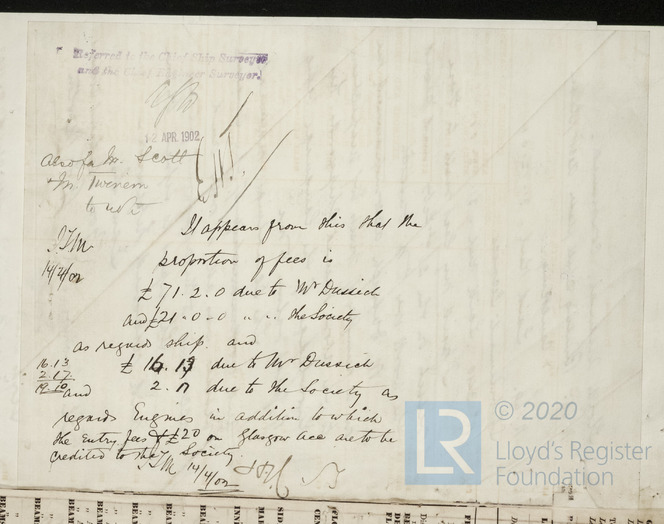 Referred to the Chief Ship Surveyor,
and the Chief Engineer Surveyor.
12 APR. 1902
Also for Mr. Scott
& Mr. Twinem
to note
JTM
14/4/02
It appears from this that the
proportion of fees is
£71.2.0 due to Mr Dussich
and £21-0-0 " " the Society
as regards ship and
£16.13 due to Mr Dussich
16.13
2.17
19.10
and 2.17 due to the Society as
regards Engines in addition to which
the Entry fees £20 on Glasgow acc are to be
credited to the Society
JTM 14/4/02
© 2020
LR
Lloyd's Register
Foundation
BEAM
BEAM
BEAM
BEAM
BEAM